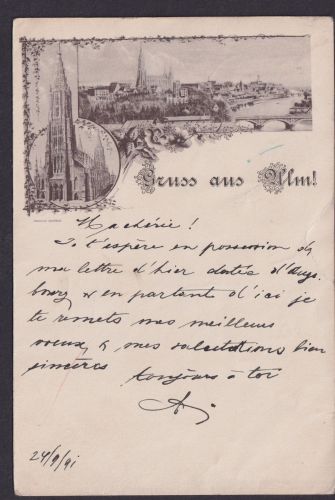 Gruss aus Ulm!
Ma chérie!
Je t'espère en possession de
ma lettre d'hier datée d'Augs-
bourg & en partant d'ici je
te remets mes meilleurs
voeux & mes salutations bien
sincères
toujours à toi
24/9/91